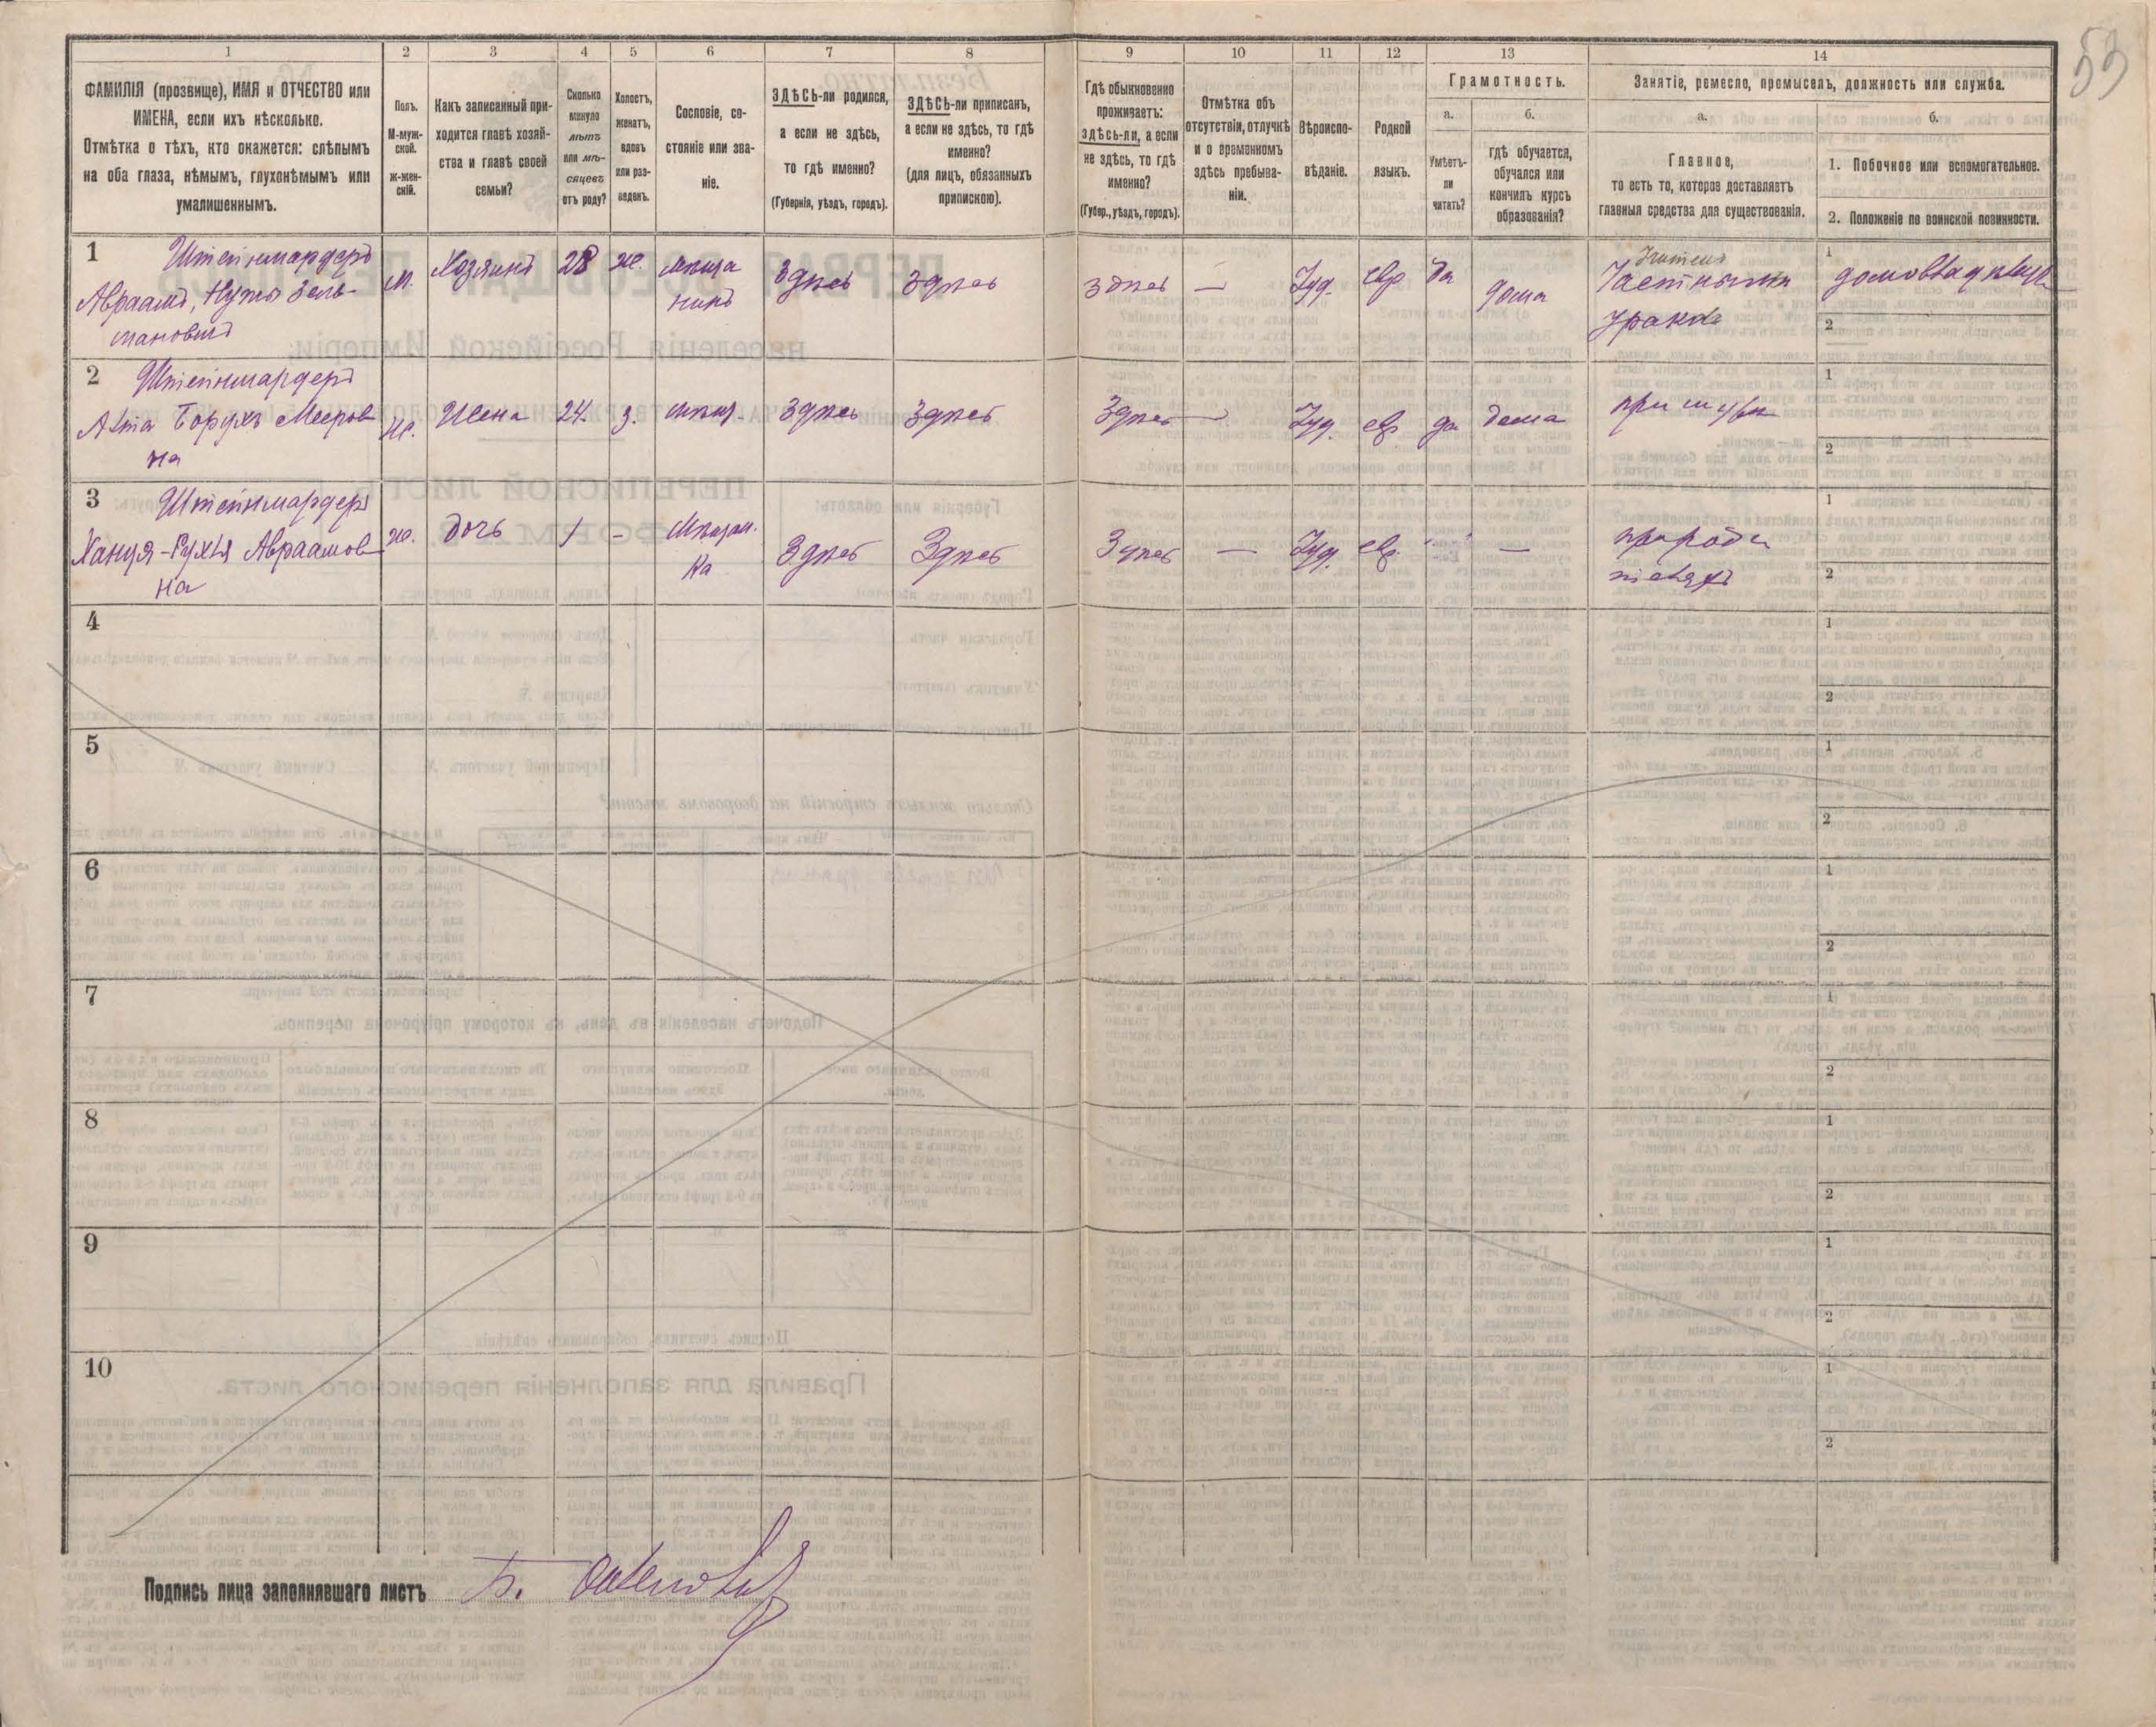 53
1
2
3
4
5
6
7
8
9
10
11
12
13
14
ФАМИЛІЯ (прозвище), ИМЯ и ОТЧЕСТВО или
ИМЕНА, если ихъ нѣсколько.
Отмѣтка о тѣхъ, кто окажется: слѣпымъ
на оба глаза, нѣмымъ, глухонѣмымъ или
умалишеннымъ.
Полъ.
М-муж-
ской.
ж-жен-
скій.
Какъ записанный при-
ходится главѣ хозяй-
ства и главѣ своей
семьи?
Сколько
минуло
лѣтъ
или мѣ-
сяцевъ
отъ роду?
Холостъ,
женатъ,
вдовъ
или раз-
веденъ.
Сословіе, со-
стояніе или зва-
ніе.
ЗДѢСЬ-ли родился,
а если не здѣсь,
то гдѣ именно?
(Губернія, уѣздъ, городъ).
ЗДѢСЬ-ли приписанъ,
а если не здѣсь, то гдѣ
именно?
(для лицъ, обязанныхъ
припискою).
Гдѣ обыкновенно
проживаетъ:
здѣсь-ли, а если
не здѣсь, то гдѣ
именно?
(Губер., уѣздъ, городъ).
Отмѣтка объ
отсутствіи, отлучкѣ
и о временномъ
здѣсь пребыва-
ніи.
Вѣроиспо-
вѣданіе.
Родной
языкъ.
Грамотность.
а.
Умѣетъ-
ли
читать?
б.
гдѣ обучается,
обучался или
кончилъ курсъ
образованія?
Занятіе, ремесло, промыселъ, должность или служба.
а.
Главное,
то есть то, которое доставляетъ
главныя средства для существованія.
б.
1. Побочное или вспомогательное.
2. Положеніе по воинской повинности.
1
Штейнмардеръ
Авраамъ, Нута Зель-
мановичъ
м.
Хозяинъ
28
же.
мѣща
нинъ
Здѣсь
Здѣсь
Здѣсь
—
Іуд.
евр
да
дома
Частныхъ
1
2
2
Штейнмардеръ
Борухъ Мееров
на
же.
Жена
24.
з.
мѣщ.
Здѣсь
Здѣсь
Здѣсь
—
Іуд.
евр
да
дома
при мужѣ
1
2
3
Штейнмардеръ
Авраамов
на
же.
дочь
1
-
Мѣщан.
ка
Здѣсь
Здѣсь
Здѣсь
—
Іуд.
евр.
—
при роди
теляхъ
1
2
4
1
2
5
1
2
6
1
2
7
1
2
8
1
2
9
1
2
10
1
2
Подпись лица заполнявшаго листъ